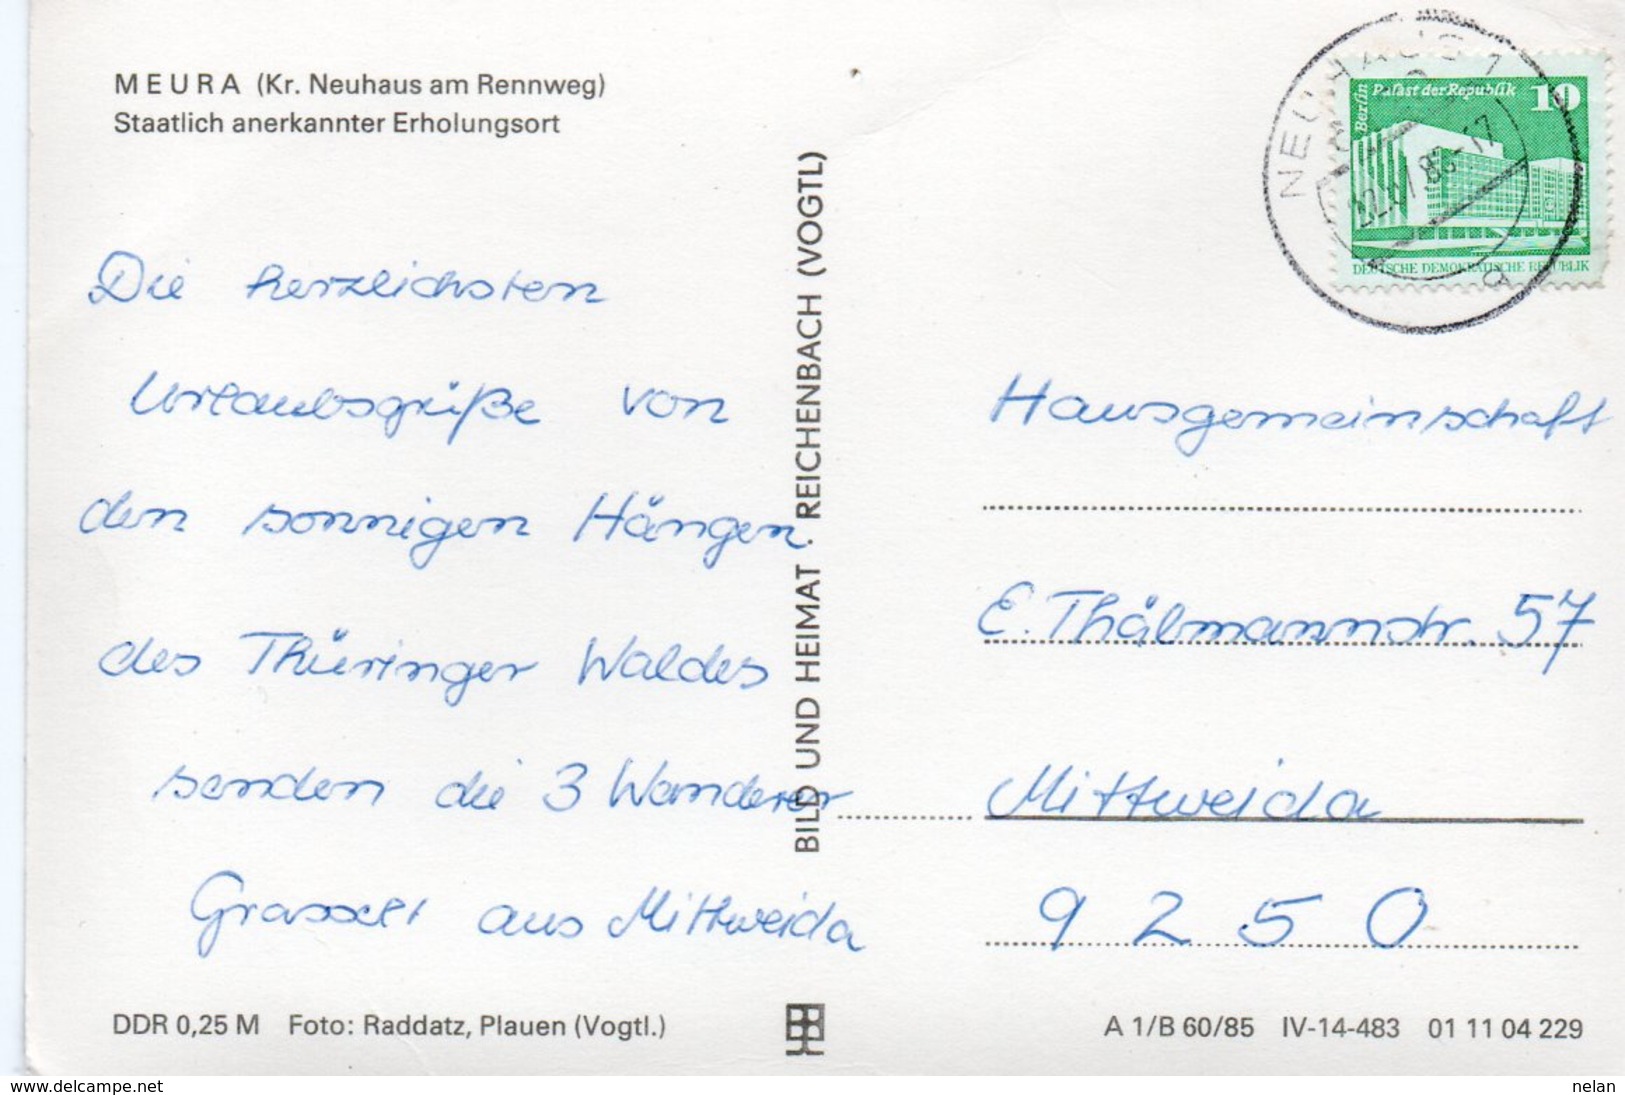 MEURA (Kr. Neuhaus am Rennweg)
Staatlich anerkannter Erholungsort
Die herzlichsten
Urlaubsgrüße von
den sonnigen Hängen
des Thüringer Waldes
senden die 3 Wanderer
aus Mittweida
DDR 0,25 M Foto: Raddatz, Plauen (Vogtl.)
BILD UND HEIMAT · REICHENBACH (VOGTL)
NEUHAUS 1
Berlin Palast der Republik 10
DEUTSCHE DEMOKRATISCHE REPUBLIK
Hausgemeinschaft
E. Thälmannstr. 57
Mittweida
9250
A 1/B 60/85 IV-14-483 01 11 04 229
www.delcampe.net
nelan